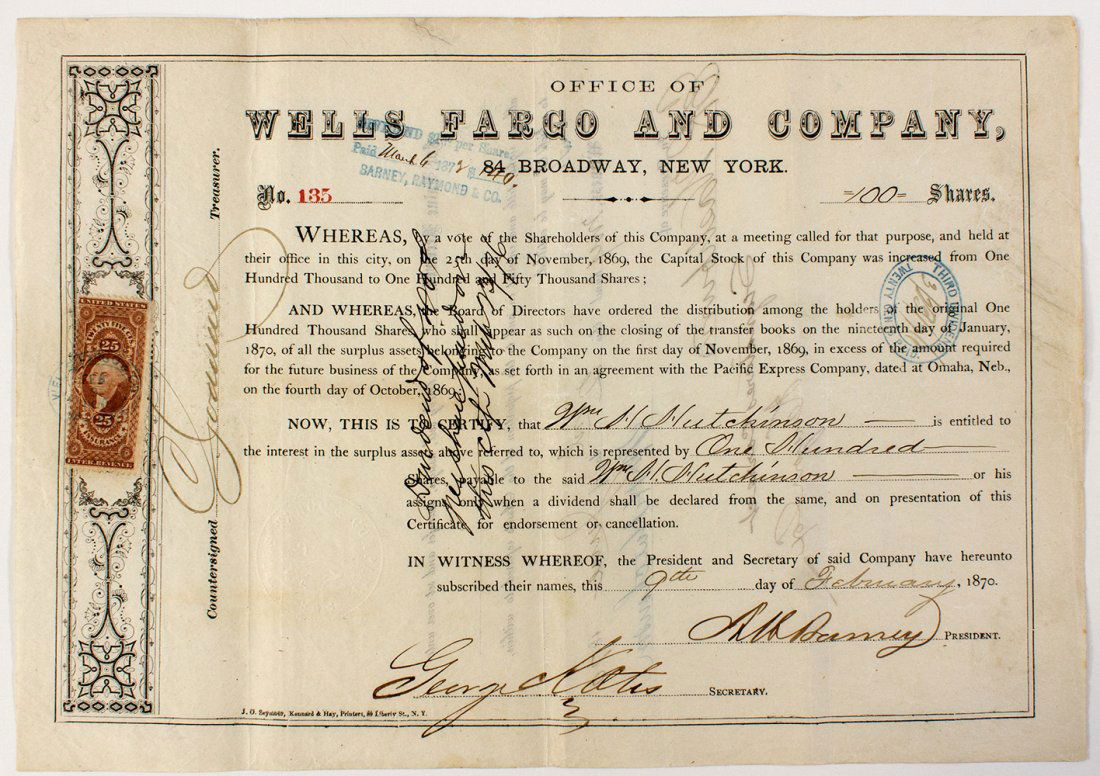 OFFICE OF
WELLS FARGO AND COMPANY,
84 BROADWAY, NEW YORK.
No. 135
100 Shares.
DIVIDEND per Share
Paid March 6 1872
BARNEY, RAYMOND & CO.
WHEREAS, by a vote of the Shareholders of this Company, at a meeting called for that purpose, and held at
their office in this city, on the 25th day of November, 1869, the Capital Stock of this Company was increased from One
Hundred Thousand to One Hundred and Fifty Thousand Shares;
AND WHEREAS, the Board of Directors have ordered the distribution among the holders of the original One
Hundred Thousand Shares, who shall appear as such on the closing of the transfer books on the nineteenth day of January,
1870, of all the surplus assets belonging to the Company on the first day of November, 1869, in excess of the amount required
for the future business of the Company, as set forth in an agreement with the Pacific Express Company, dated at Omaha, Neb.,
on the fourth day of October, 1869;
NOW, THIS IS TO CERTIFY, that Wm H Hutchinson is entitled to
the interest in the surplus assets above referred to, which is represented by One Hundred
Shares, payable to the said Wm H Hutchinson or his
assigns, only when a dividend shall be declared from the same, and on presentation of this
Certificate for endorsement or cancellation.
IN WITNESS WHEREOF, the President and Secretary of said Company have hereunto
subscribed their names, this 9th day of February, 1870.
A H Barney PRESIDENT.
George K Otis SECRETARY.
J. O. Seymour, Kennard & Hay, Printers, 89 Liberty St., N. Y.
Countersigned
Treasurer.
UNITED STATES
25
25
INSURANCE
INTER. REVENUE
THIRD
TWENTY CENT